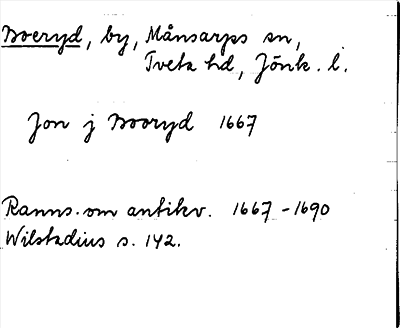 Boeryd, by, Månsarps sn,
Tveta hd, Jönk. l.
Jon j Booryd 1667
Ranns. om antikv. 1667-1690
Wilstadius s. 142.